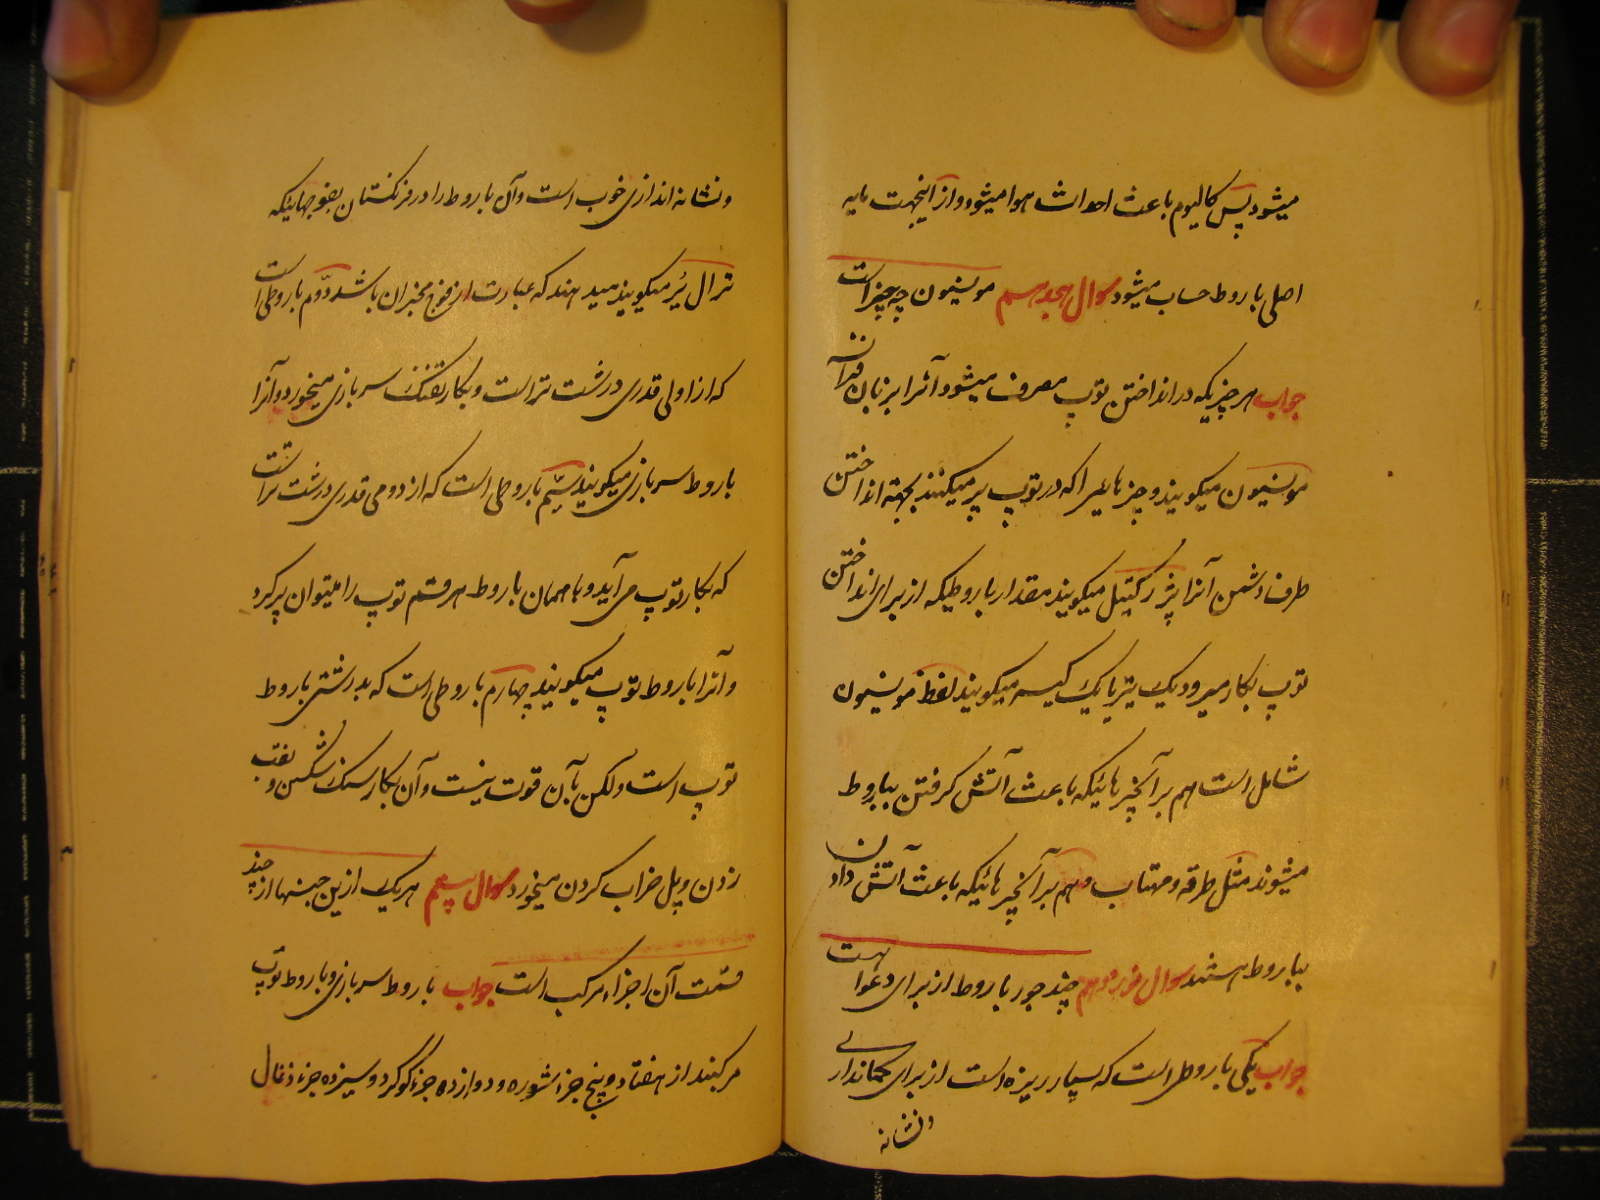 میشود پس کالیوم باعث احداث هوا میشود و از اینجهت مایه
اصلی باروط حساب میشود سوال هجدهم مونسیون چه چیز است
جواب هر چیزیکه در انداختن توپ مصروف میشود آنرا بزبان فرانسه
مونسیون میکویند و چیزهائیرا که در توپ پر میکنند بجهته انداختن
طرف دشمن آنرا پرژکتیل میکویند مقدار باروطیکه از برای انداختن
توپ بکار میرود یک تیر یا یک کیسه میکویند لفظ مونسیون
شامل است هم بر آنچیزهائیکه باعث آتش کرفتن بباروط
میشوند مثل طرقه و مهتاب و هم بر آنچیزهائیکه باعث آتش دادن
بباروط هستند سوال نوزدهم چند جور باروط از برای دعوا هست
جواب یکی باروطی است که بسیار ریزه است از برای کماندار
و نشانه
و نشانه اندازی خوب است و آن باروط را در فرنکستان بفوجهائیکه
ترال یُر میکویند میدهند که عبارت از فوج مخبران باشد دوّم باروطی است
که از اولی قدری درشت تر است و بکار تفنک سربازی میخورد و آنرا
باروط سربازی میکویند سیّم باروطی است که از دومی قدری درشت تر است
که بکار توپ می آید و با همان باروط هر قسم توپ را میتوان پر کرد
و آنرا باروط توپ میکویند چهارم باروطی است که بدرشتی باروط
توپ است ولکن بآن قوت نیست و آن بکار سنک شکستن و نقب
زدن و پل خراب کردن میخورد سوال بیستم هر یک ازین جبنها از چند
قسمت آن اجزاء مرکب است جواب باروط سربازی و باروط توپ
مرکبند از هفتاد و پنج جزء شوره و دوازده جزء کوکرد و سیزده جزء ذغال